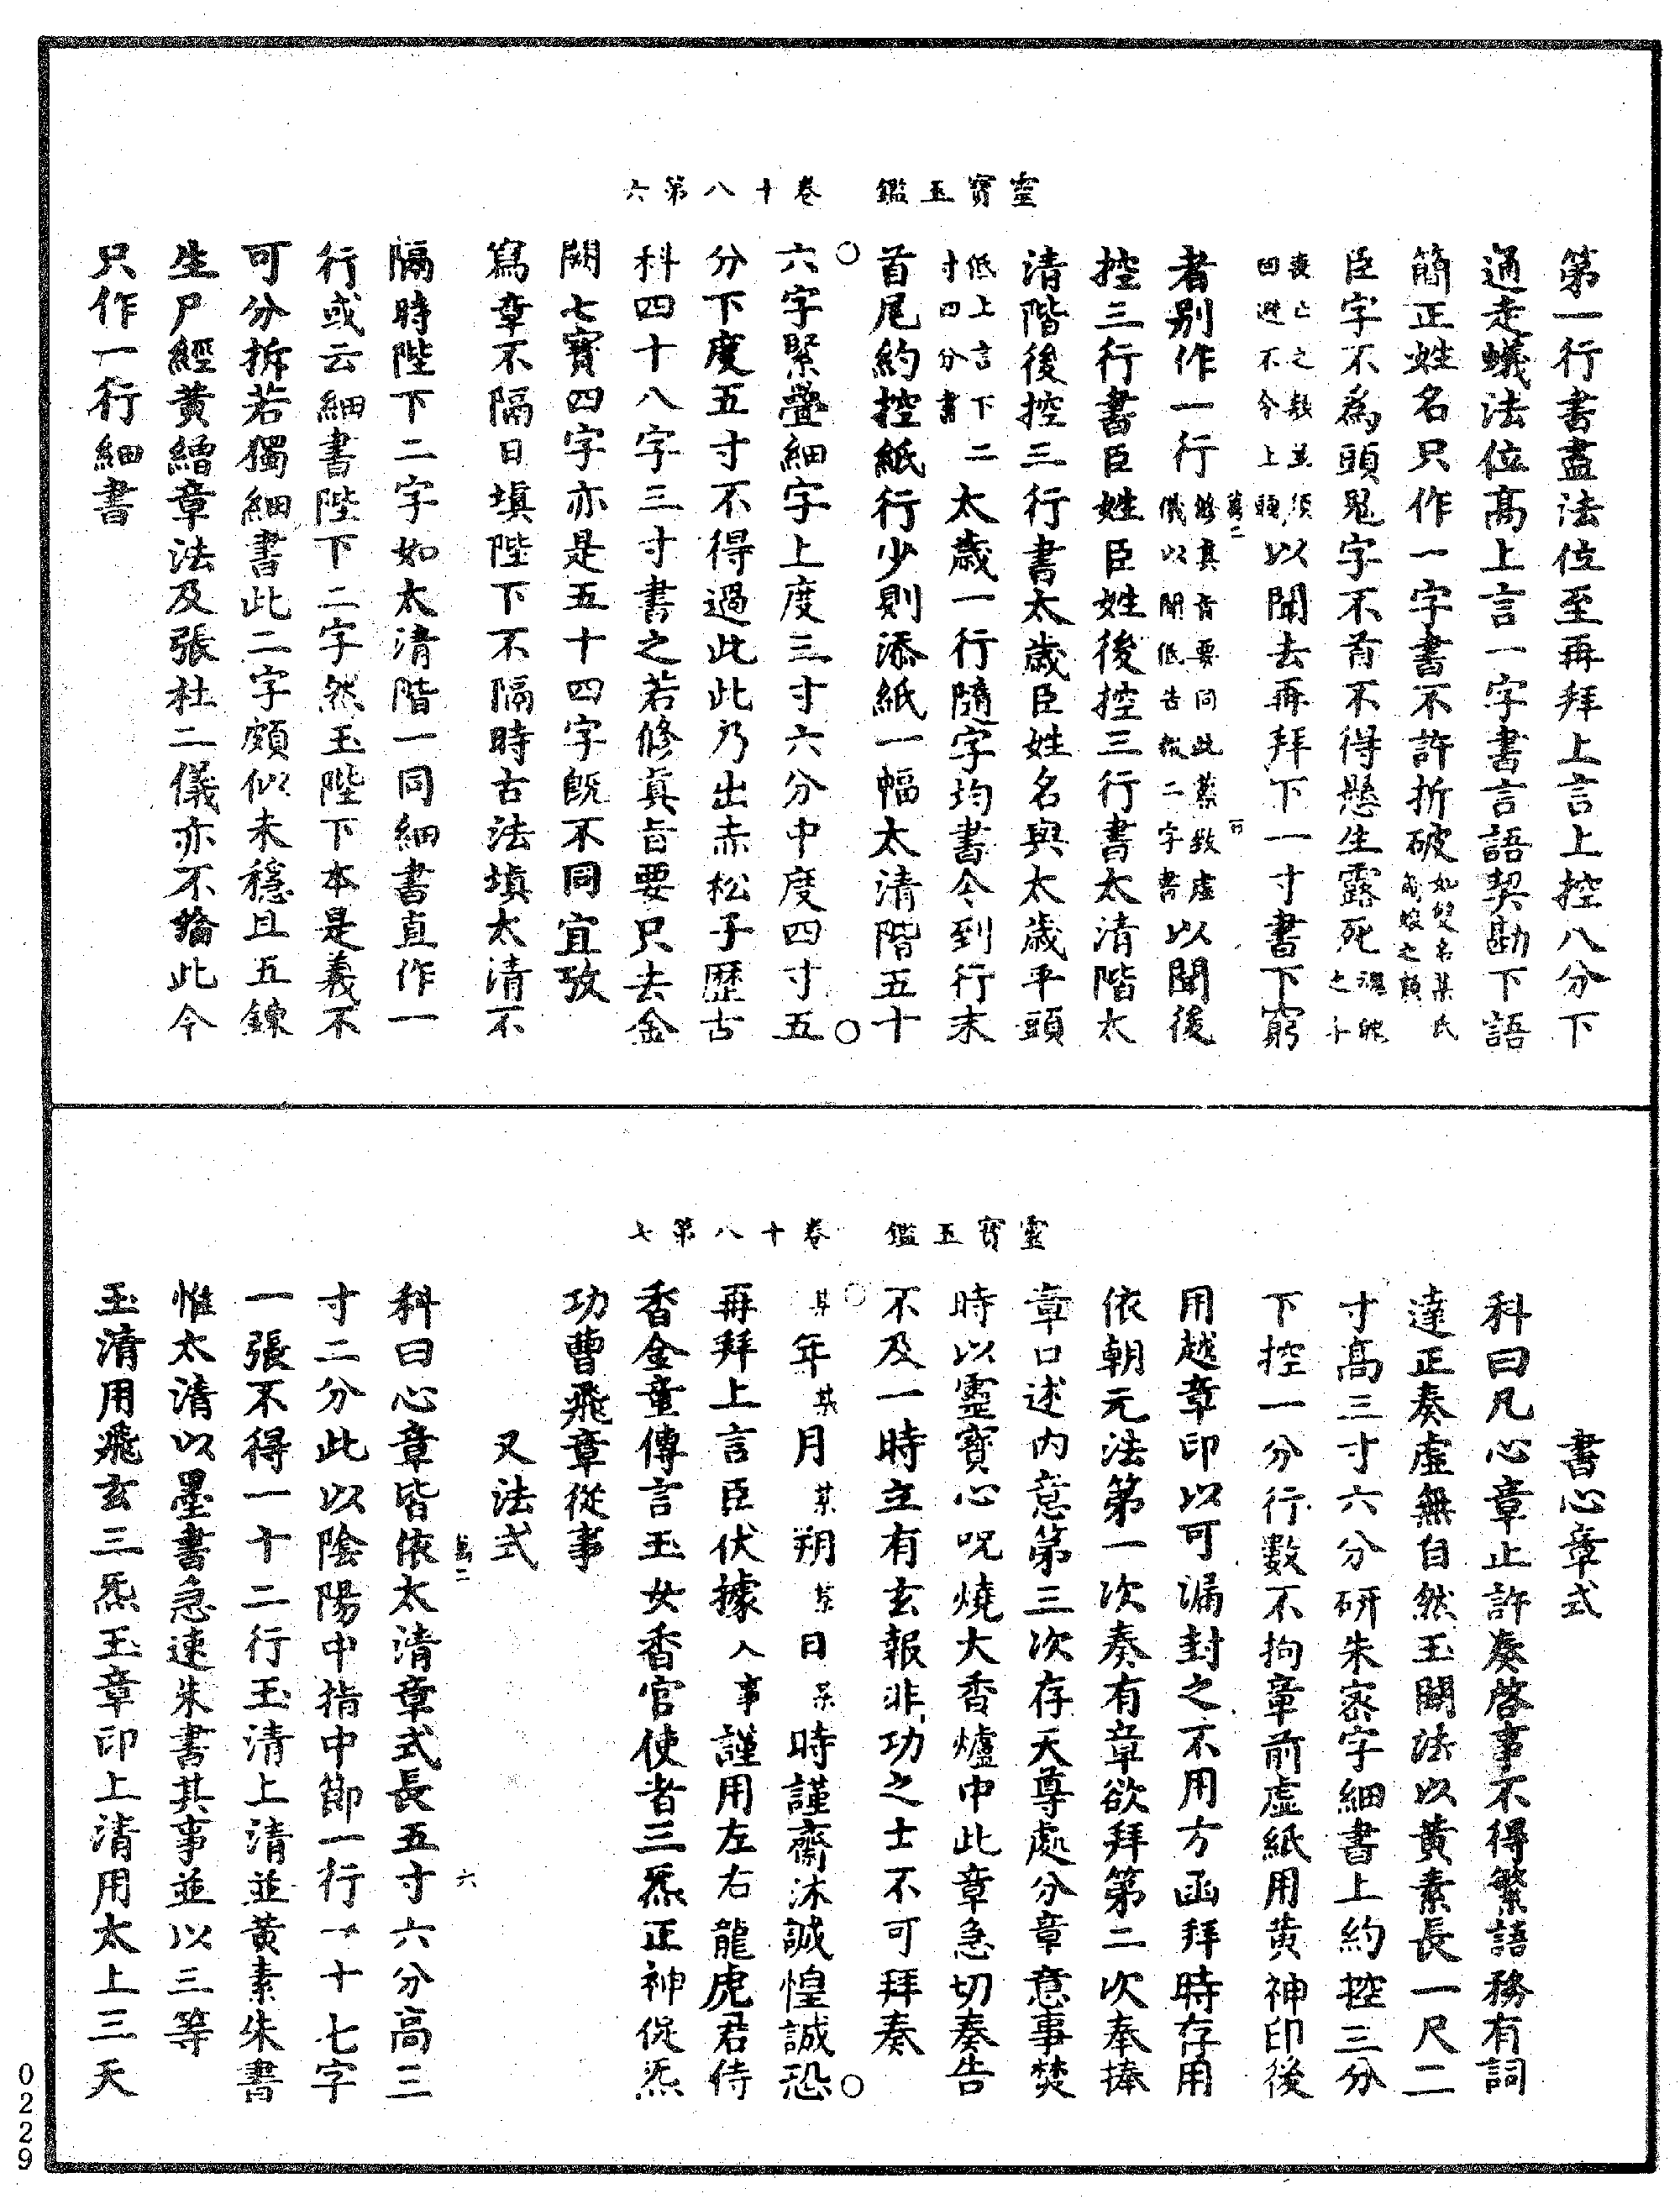 靈寶玉鑑　卷十八第六
第一行書盡法位至再拜上言上控八分下
通走蟻法位高上言一字書言語契勘下語
簡正姓名只作一字書不許折破如雙名某氏之類
臣字不為頭鬼字不首不得懸生露死
喪亡之數並須回避不令上頭以聞去再拜下一寸書下窮
者別作一行修真旨要同此叢數虛儀以聞低告報二字書以聞後
控三行書臣姓臣姓後控三行書太清階太
清階後控三行書太歲臣姓名與太歲平頭
低上言下二寸四分書太歲一行隨字均書令到行末
首尾約控紙行少則添紙一幅太清階五十
六字緊疊細字上度三寸六分中度四寸五
分下度五寸不得過此此乃出赤松子歷古
科四十八字三寸書之若修真旨要只去金
闕七寶四字亦是五十四字既不同宜攷
寫章不隔日填陛下不隔時古法填太清不
隔時陛下二字如太清階一同細書直作一
行或云細書陛下二字然玉陛下本是義不
可分拆若獨細書此二字頗似未穩且五鍊
生尸經黃繒章法及張杜二儀亦不論此今
只作一行細書
靈寶玉鑑　卷十八第七
書心章式
科曰凡心章止許奏啓事不得繁語務有詞
達正奏虛無自然玉闕法以黃素長一尺二
寸高三寸六分研朱密字細書上約控三分
下控一分行數不拘章前虛紙用黃神印後
用越章印以可漏封之不用方函拜時存用
依朝元法第一次奏有章欲拜第二次奉捧
章口述內意第三次存天尊處分章意事焚
時以靈寶心呪燒大香爐中此章急切奏告
不及一時立有玄報非功之士不可拜奏
某年某月某朔某日某時謹齋沐誠惶誠恐
再拜上言臣伏據入事謹用左右龍虎君侍
香金童傳言玉女香官使者三炁正神促炁
功曹飛章從事
又法式
科曰心章皆依太清章式長五寸六分高三
寸二分此以陰陽中指中節一行一十七字
一張不得一十二行玉清上清並黃素朱書
惟太清以墨書急速朱書其事並以三等
玉清用飛玄三炁玉章印上清用太上三天
0229